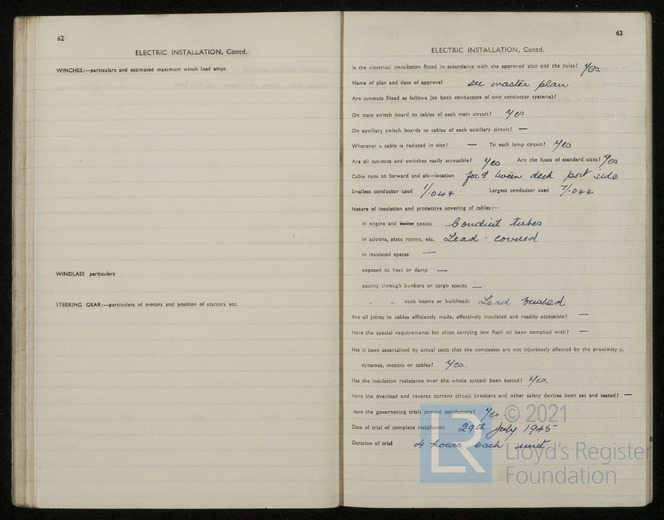 62
ELECTRIC INSTALLATION, Contd.
WINCHES:—particulars and estimated maximum winch load amps
WINDLASS particulars
STEERING GEAR:—particulars of motors and position of starters etc.
63
ELECTRIC INSTALLATION, Contd.
Is the electrical installation fitted in accordance with the approved plan and the rules? Yes
Name of plan and date of approval see master plan
Are cut-outs fitted as follows (to both conductors of two conductor systems)?
On main switch board to cables of each main circuit? Yes
On auxiliary switch boards to cables of each auxiliary circuit? —
Wherever a cable is reduced in size? — To each lamp circuit? Yes
Are all cut-outs and switches easily accessible? Yes Are the fuses of standard sizes? Yes
Cable runs to forward and aft—location tween deck port side
Smallest conductor used 1/.044 Largest conductor used 7/.044
Nature of insulation and protective covering of cables:—
in engine and boiler spaces Conduit tubes
in saloons, state rooms, etc. Lead - covered
in insulated spaces —
exposed to heat or damp —
passing through bunkers or cargo spaces —
„ „ deck beams or bulkheads Lead bushed
Are all joints in cables efficiently made, effectively insulated and readily accessible? —
Have the special requirements for ships carrying low flash oil been complied with? —
Has it been ascertained by actual tests that the compasses are not injuriously affected by the proximity o.
dynamos, motors or cables? Yes.
Has the insulation resistance over the whole system been tested? Yes.
Have the overhead and reverse current circuit breakers and other safety devices been set and tested? —
Have the governoring trials proved satisfactory? Yes.
Date of trial of complete installation 29th July 1945
Duration of trial 4 hours each unit
LR
© 2021
Lloyd's Register
Foundation